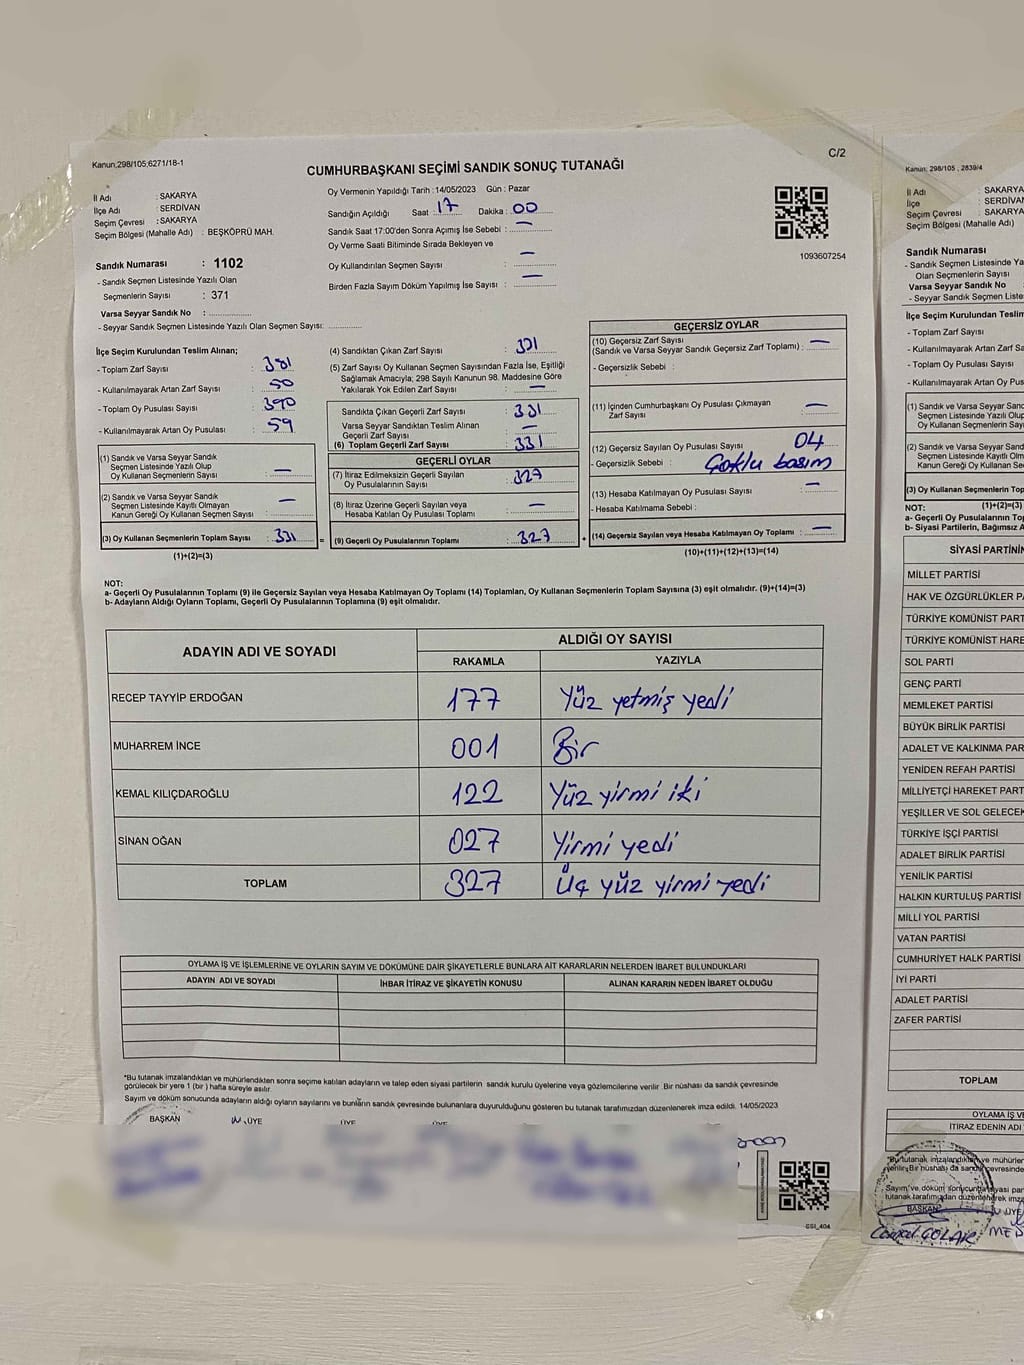 Kanun;298/105;6271/18-1
C/2
CUMHURBAŞKANI SEÇİMİ SANDIK SONUÇ TUTANAĞI
İl Adı : SAKARYA
İlçe Adı : SERDİVAN
Seçim Çevresi : SAKARYA
Seçim Bölgesi (Mahalle Adı) : BEŞKÖPRÜ MAH.
Oy Vermenin Yapıldığı Tarih :14/05/2023 Gün : Pazar
Sandığın Açıldığı Saat : 17 Dakika : 00
Sandık Saat 17:00'den Sonra Açımış İse Sebebi : —
Oy Verme Saati Bitiminde Sırada Bekleyen ve
Oy Kullandırılan Seçmen Sayısı : —
Birden Fazla Sayım Döküm Yapılmış İse Sayısı : —
1093607254
Sandık Numarası : 1102
- Sandık Seçmen Listesinde Yazılı Olan
Seçmenlerin Sayısı : 371
Varsa Seyyar Sandık No :
- Seyyar Sandık Seçmen Listesinde Yazılı Olan Seçmen Sayısı:
İlçe Seçim Kurulundan Teslim Alınan;
- Toplam Zarf Sayısı : 381
- Kullanılmayarak Artan Zarf Sayısı : 50
- Toplam Oy Pusulası Sayısı : 390
- Kullanılmayarak Artan Oy Pusulası : 59
(1) Sandık ve Varsa Seyyar Sandık
Seçmen Listesinde Yazılı Olup
Oy Kullanan Seçmenlerin Sayısı : —
(2) Sandık ve Varsa Seyyar Sandık
Seçmen Listesinde Kayıtlı Olmayan
Kanun Gereği Oy Kullanan Seçmen Sayısı : —
(3) Oy Kullanan Seçmenlerin Toplam Sayısı : 331
(1)+(2)=(3)
(4) Sandıktan Çıkan Zarf Sayısı : 331
(5) Zarf Sayısı Oy Kullanan Seçmen Sayısından Fazla İse, Eşitliği
Sağlamak Amacıyla; 298 Sayılı Kanunun 98. Maddesine Göre
Yakılarak Yok Edilen Zarf Sayısı : —
Sandıkta Çıkan Geçerli Zarf Sayısı : 331
Varsa Seyyar Sandıktan Teslim Alınan
Geçerli Zarf Sayısı : —
(6) Toplam Geçerli Zarf Sayısı : 331
GEÇERLİ OYLAR
(7) İtiraz Edilmeksizin Geçerli Sayılan
Oy Pusulalarının Sayısı : 327
(8) İtiraz Üzerine Geçerli Sayılan veya
Hesaba Katılan Oy Pusulası Toplamı : —
= (9) Geçerli Oy Pusulalarının Toplamı : 327
GEÇERSİZ OYLAR
(10) Geçersiz Zarf Sayısı
(Sandık ve Varsa Seyyar Sandık Geçersiz Zarf Toplamı) : —
- Geçersizlik Sebebi :
(11) İçinden Cumhurbaşkanı Oy Pusulası Çıkmayan
Zarf Sayısı : —
(12) Geçersiz Sayılan Oy Pusulası Sayısı : 04
- Geçersizlik Sebebi : Çoklu basım
(13) Hesaba Katılmayan Oy Pusulası Sayısı : —
- Hesaba Katılmama Sebebi :
+ (14) Geçersiz Sayılan veya Hesaba Katılmayan Oy Toplamı : —
(10)+(11)+(12)+(13)=(14)
NOT:
a- Geçerli Oy Pusulalarının Toplamı (9) ile Geçersiz Sayılan veya Hesaba Katılmayan Oy Toplamı (14) Toplamları, Oy Kullanan Seçmenlerin Toplam Sayısına (3) eşit olmalıdır. (9)+(14)=(3)
b- Adayların Aldığı Oyların Toplamı, Geçerli Oy Pusulalarının Toplamına (9) eşit olmalıdır.
ADAYIN ADI VE SOYADI ALDIĞI OY SAYISI
RAKAMLA YAZIYLA
RECEP TAYYİP ERDOĞAN 177 Yüz yetmiş yedi
MUHARREM İNCE 001 Bir
KEMAL KILIÇDAROĞLU 122 Yüz yirmi iki
SİNAN OĞAN 027 Yirmi yedi
TOPLAM 327 Üç yüz yirmi yedi
OYLAMA İŞ VE İŞLEMLERİNE VE OYLARIN SAYIM VE DÖKÜMÜNE DAİR ŞİKAYETLERLE BUNLARA AİT KARARLARIN NELERDEN İBARET BULUNDUKLARI
ADAYIN ADI VE SOYADI İHBAR İTİRAZ VE ŞİKAYETİN KONUSU ALINAN KARARIN NEDEN İBARET OLDUĞU
*Bu tutanak imzalandıktan ve mühürlendikten sonra seçime katılan adayların ve talep eden siyasi partilerin sandık kurulu üyelerine veya gözlemcilerine verilir. Bir nüshası da sandık çevresinde
görülecek bir yere 1 (bir) hafta süreyle asılır.
Sayım ve döküm sonucunda adayların aldığı oyların sayılarını ve bunların sandık çevresinde bulunanlara duyurulduğunu gösteren bu tutanak tarafımızdan düzenlenerek imza edildi. 14/05/2023
BAŞKAN ÜYE ÜYE ÜYE
SSI_404
Kanun: 298/105 , 2839/4
İl Adı : SAKARYA
İlçe : SERDİVAN
Seçim Çevresi : SAKARYA
Seçim Bölgesi (Mahalle Adı) : BEŞ
Sandık Numarası
- Sandık Seçmen Listesinde Ya
Olan Seçmenlerin Sayısı
Varsa Seyyar Sandık No
- Seyyar Sandık Seçmen Liste
İlçe Seçim Kurulundan Teslim
- Toplam Zarf Sayısı
- Kullanılmayarak Artan Zarf Sa
- Toplam Oy Pusulası Sayısı
- Kullanılmayarak Artan Oy Pu
(1) Sandık ve Varsa Seyyar Sand
Seçmen Listesinde Yazılı Olup
Oy Kullanan Seçmenlerin Sayı
(2) Sandık ve Varsa Seyyar Sand
Seçmen Listesinde Kayıtlı Olm
Kanun Gereği Oy Kullanan Se
(3) Oy Kullanan Seçmenlerin Top
(1)+(2)=(3)
NOT:
a- Geçerli Oy Pusulalarının To
b- Siyasi Partilerin, Bağımsız A
SİYASİ PARTİNİN
MİLLET PARTİSİ
HAK VE ÖZGÜRLÜKLER PA
TÜRKİYE KOMÜNİST PART
TÜRKİYE KOMÜNİST HARE
SOL PARTİ
GENÇ PARTİ
MEMLEKET PARTİSİ
BÜYÜK BİRLİK PARTİSİ
ADALET VE KALKINMA PAR
YENİDEN REFAH PARTİSİ
MİLLİYETÇİ HAREKET PART
YEŞİLLER VE SOL GELECEK
TÜRKİYE İŞÇİ PARTİSİ
ADALET BİRLİK PARTİSİ
YENİLİK PARTİSİ
HALKIN KURTULUŞ PARTİSİ
MİLLİ YOL PARTİSİ
VATAN PARTİSİ
CUMHURİYET HALK PARTİSİ
İYİ PARTİ
ADALET PARTİSİ
ZAFER PARTİSİ
TOPLAM
OYLAMA İŞ VE
İTİRAZ EDENİN ADI
*Bu tutanak imzalandıktan ve mühürlen
verilir. Bir nüshası da sandık çevresinde
Sayım ve döküm sonucunda siyasi par
tutanak tarafımızdan düzenlenerek imza
BAŞKAN ÜYE